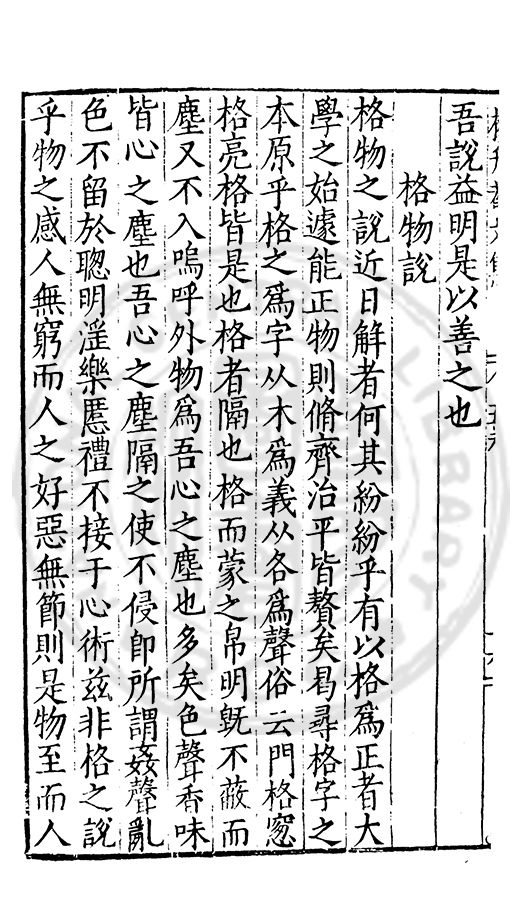 吾說益明是以善之也
格物說
格物之說近日解者何其紛紛乎有以格爲正者大
學之始遽能正物則脩齊治平皆贅矣曷尋格字之
本原乎格之爲字从木爲義从各爲聲俗云門格窓
格亮格皆是也格者隔也格而蒙之帛明旣不蔽而
塵又不入嗚呼外物爲吾心之塵也多矣色聲香味
皆心之塵也吾心之塵隔之使不侵卽所謂姦聲亂
色不留於聦明滛樂慝禮不接于心術兹非格之說
乎物之感人無窮而人之好惡無節則是物至而人